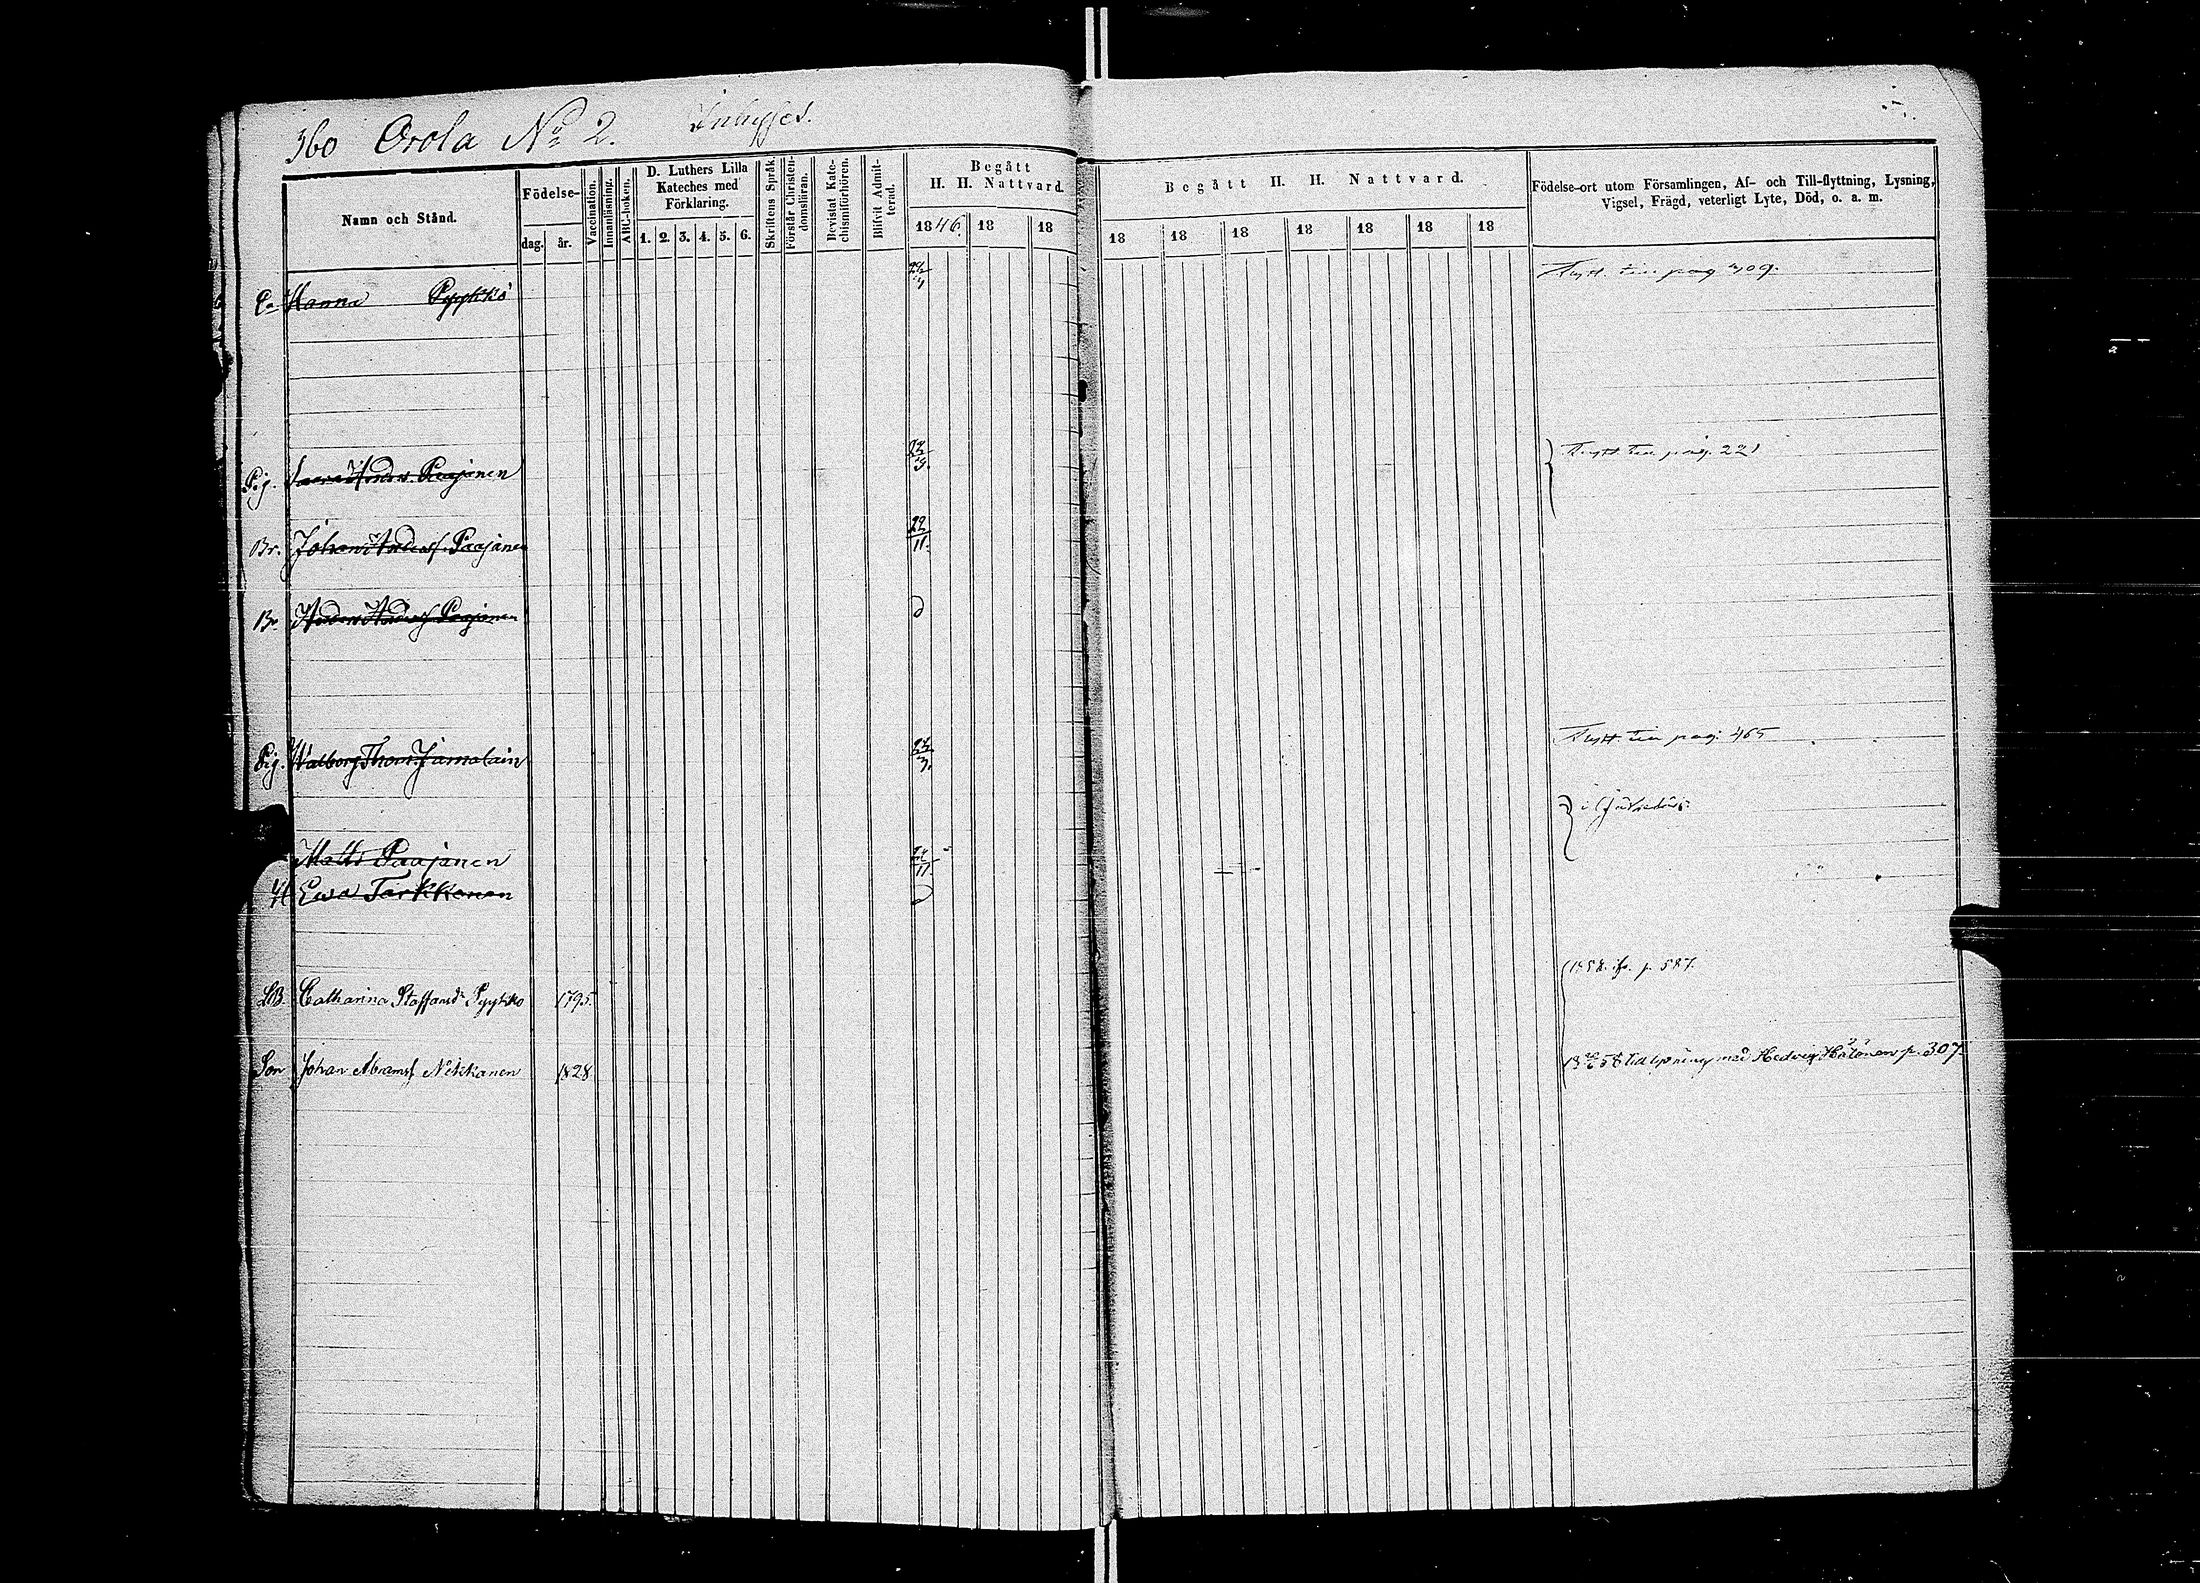 360 Orola No 2. Inhyses.
Namn och Stånd.
Födelse-
dag. år.
Vaccination.
Innanläsning.
ABC-boken.
D. Luthers Lilla
Kateches med
Förklaring.
1. 2. 3. 4. 5. 6.
Skriftens Språk
Förstår Christen-
domsläran.
Bevistat Kate-
chismiförhören.
Blifvit Admit-
terad.
Begått
H. H. Nattvard.
1846. 18 18
Begått H. H. Nattvard.
18 18 18 18 18 18 18
Födelse-ort utom Församlingen, Af- och Till-flyttning, Lysning,
Vigsel, Frägd, veterligt Lyte, Död, o. a. m.
Ea Hanna Pyykkö Flytt. till pag 309.
Pig. Anders. Paajanen Flytt. till pag. 221
Br. Johan Andersf. Paajanen 22/11.
Br Anders Andersf Paajanen d
Pig. Walborg Thom. Jämälain Flytt. till pag. 465
Matts Paajanen
H Ewa Tarkkanen d
p. 587.
Catharina Staffansdr Pyykkö 1795.
Son Johan Abramsf Nykkanen 1828 till lysning med Hedvig Hälönen p. 307.